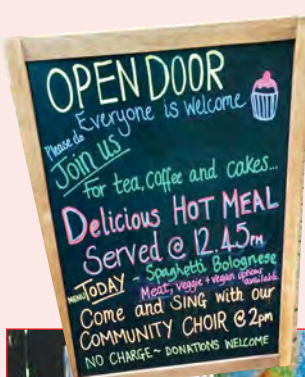 OPEN DOOR
Everyone is welcome
Please do
Join us
for tea, coffee and cakes...
Delicious HOT MEAL
Served @ 12.45pm
MENU TODAY - Spaghetti Bolognese
Meat, veggie + vegan options available
Come and SING with our
COMMUNITY CHOIR @ 2pm
NO CHARGE ~ DONATIONS WELCOME